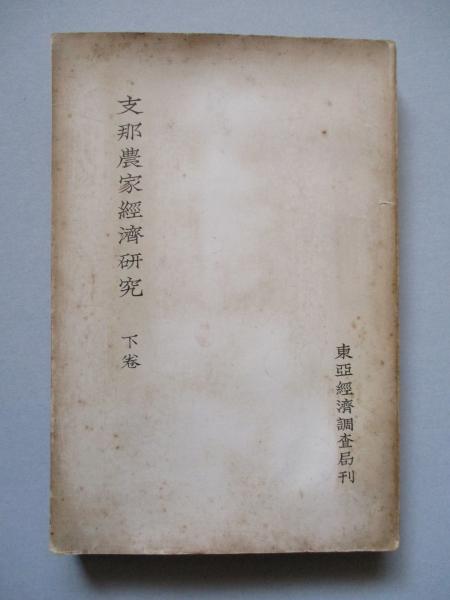 支那農家經濟研究 下卷
東亞經濟調查局刊